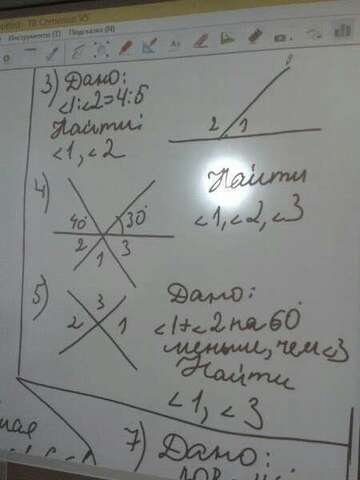 Инструменты (T) Подсказка (N)
3) Дано:
<1:<2=4:5
Найти:
<1, <2
2 1
4)
40° 30°
2 1 3
Найти
<1, <2, <3
5)
3
2 1
Дано:
<1+<2 на 60°
меньше, чем <3
Найти
<1, <3
7) Дано: